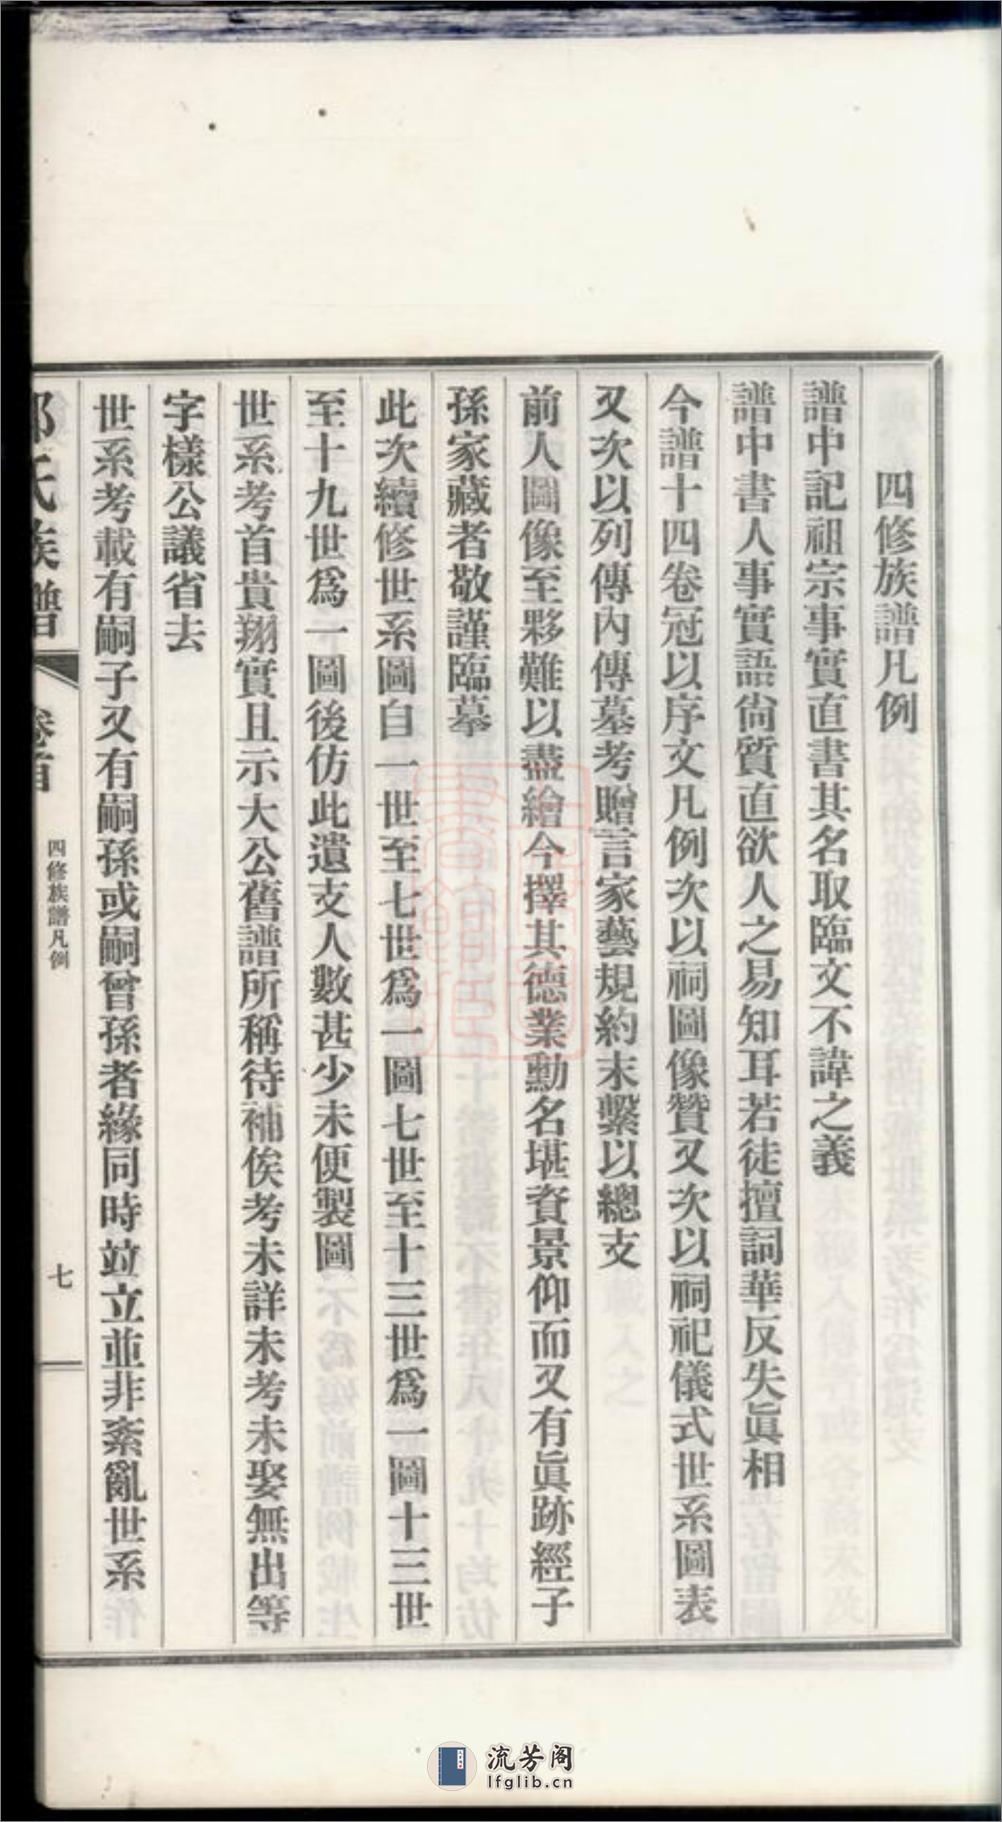 四修族譜凡例
譜中記祖宗事實直書其名取臨文不諱之義
譜中書人事實語尙質直欲人之易知耳若徒擅詞華反失眞相
今譜十四卷冠以序文凡例次以祠圖像贊又次以祠祀儀式世系圖表
又次以列傳內傳墓考贈言家藝規約末繫以總支
前人圖像至夥難以盡繪今擇其德業勳名堪資景仰而又有眞跡經子
孫家藏者敬謹臨摹
此次續修世系圖自一世至七世爲一圖七世至十三世爲一圖十三世
至十九世爲一圖後仿此遺支人數甚少未便製圖
世系考首貴翔實且示大公舊譜所稱待補俟考未詳未考未娶無出等
字樣公議省去
世系考載有嗣子又有嗣孫或嗣曾孫者緣同時竝立並非紊亂世系
氏族譜
卷首
四修族譜凡例
七
流芳阁
lfglib.cn